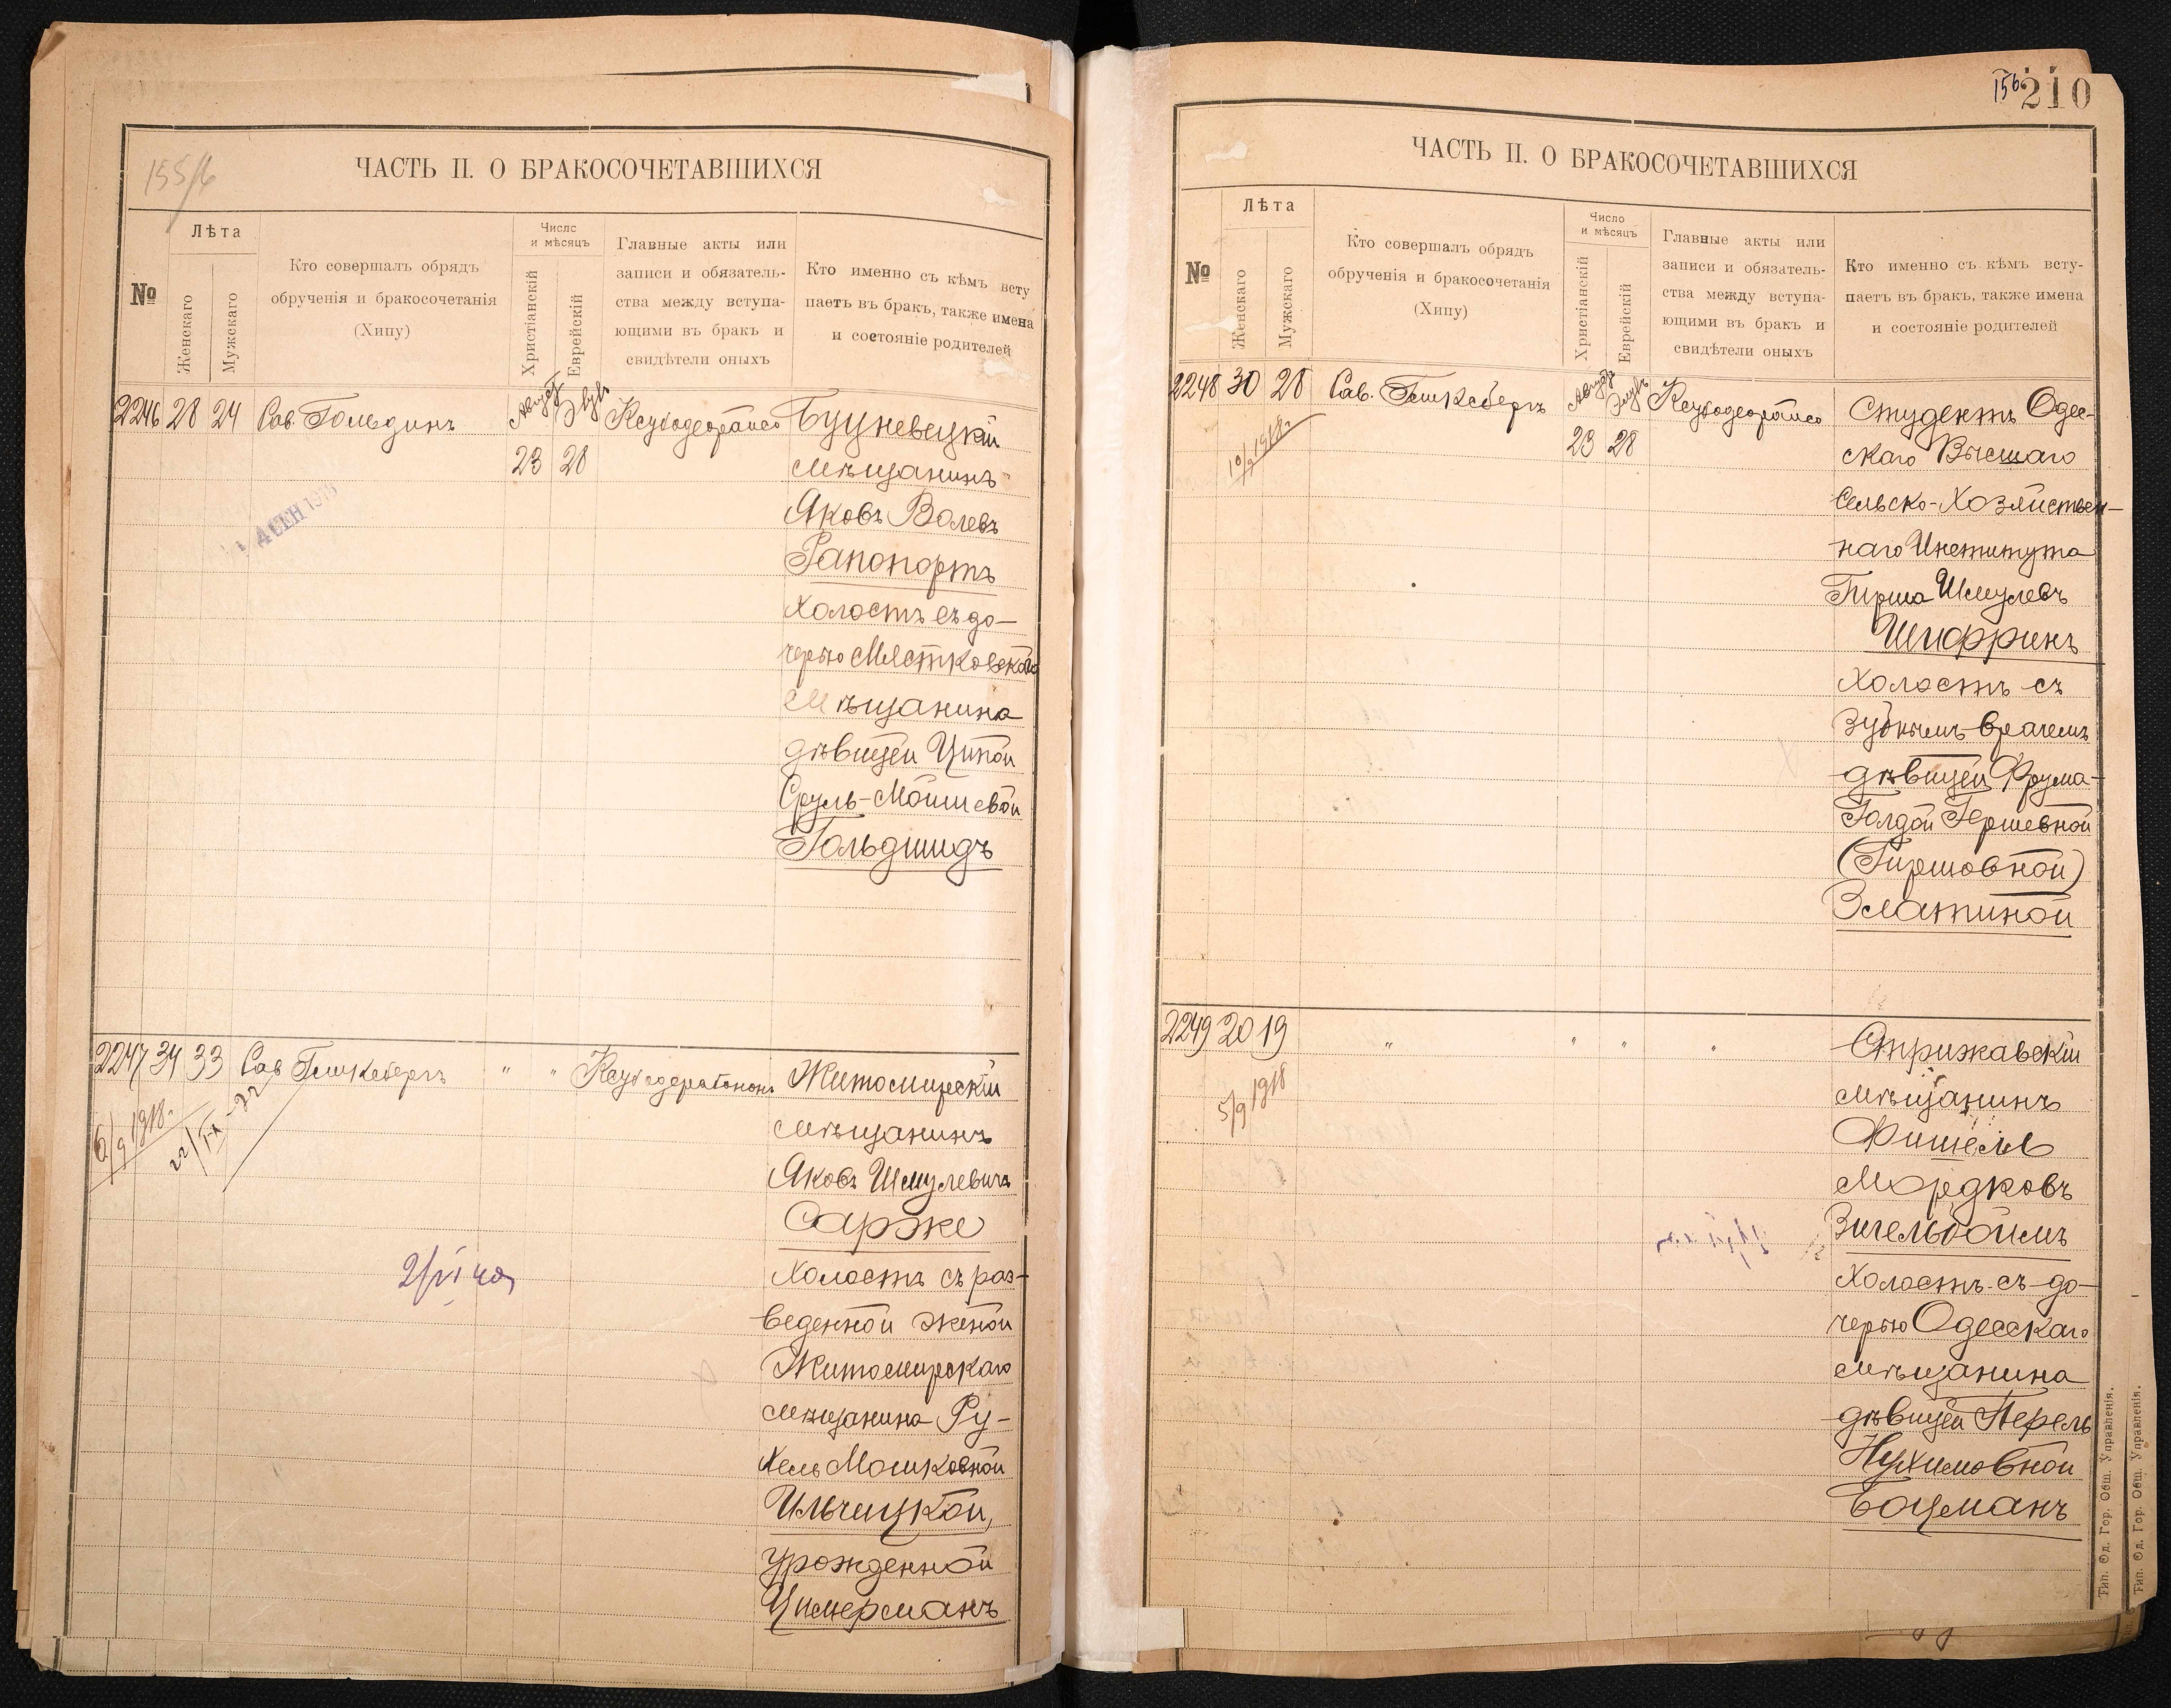 155/6
ЧАСТЬ II. О БРАКОСОЧЕТАВШИХСЯ
№
Лѣта
Женскаго
Мужскаго
Кто совершалъ обрядъ
обрученія и бракосочетанія
(Хипу)
Число
и мѣсяцъ
Христіанскій
Еврейскій
Главные акты или
записи и обязатель-
ства между вступа-
ющими въ бракъ и
свидѣтели оныхъ
Кто именно съ кѣмъ всту
паетъ въ бракъ, также имена
и состояніе родителей
2246 28 24 Сав. Гольдинъ Августъ Элулъ
23 28
4 СЕН 1918
мѣщанинъ
Яковъ Волевъ
Рапопортъ
холостъ съ до-
черью Мястковскаго
мѣщанина
дѣвицей Ципой
Сруль-Мошевой
Гольдшидъ
2247 34 33 Сав. " "
Житомирскій
6/9 1918 г.
мѣщанинъ
Яковъ Шмулевичъ
Сарже
холостъ съ раз-
веденной женой
Житомирскаго
мѣщанина Ру-
хель Мошковной
Ильчицкой,
урожденной
Цимерманъ
156
210
ЧАСТЬ II. О БРАКОСОЧЕТАВШИХСЯ
№
Лѣта
Женскаго
Мужскаго
Кто совершалъ обрядъ
обрученія и бракосочетанія
(Хипу)
Число
и мѣсяцъ
Христіанскій
Еврейскій
Главные акты или
записи и обязатель-
ства между вступа-
ющими въ бракъ и
свидѣтели оныхъ
Кто именно съ кѣмъ всту-
паетъ въ бракъ, также имена
и состояніе родителей
2248 30 28 Сав. Августъ Элулъ
23 28
10/9 1918 г.
Студентъ Одес-
скаго Высшаго
Сельско-Хозяйствен-
наго Института
Гирша Шмулевъ
Шифринъ
холостъ съ
зубнымъ-врачемъ
дѣвицей Фрума-
Голдой Гершевной
(Гиршовной)
Златиной
2249 20 19 " " " "
5/9 1918
мѣщанинъ
Фишель
Мордковъ
Зигельбоймъ
холостъ съ до-
черью Одесскаго
мѣщанина
дѣвицей Перель
Нухимовной
Боцманъ
Тип. Од. Гор. Общ. Управленія.
Тип. Од. Гор. Общ. Управленія.